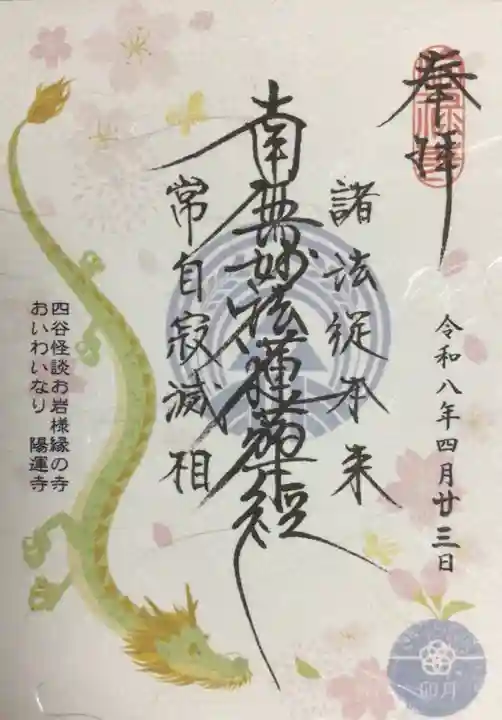 奉拝
令和八年四月廿三日
諸法従本来
南無妙法蓮華経
常自寂滅相
四谷怪談お岩様縁の寺
おいわいなり 陽運寺
卯月